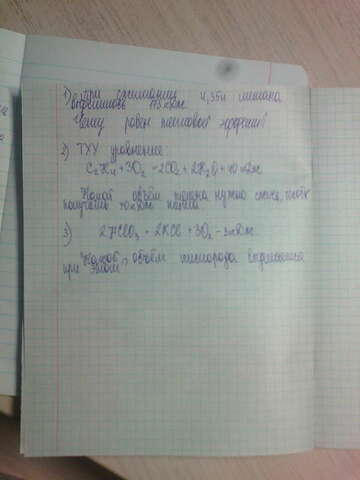 1) При сжигании 4,35л метана
выделилось 173 кДж
Чему равен тепловой эффект?
2) ТХУ уравнение
C2H4 + 3O2 = 2CO2 + 2H2O + кДж
Какой объём этена нужно сжечь, чтобы
получилось кДж тепла
3) 2KClO3 = 2KCl + 3O2 - кДж
Какой объём кислорода выделился
при этом?